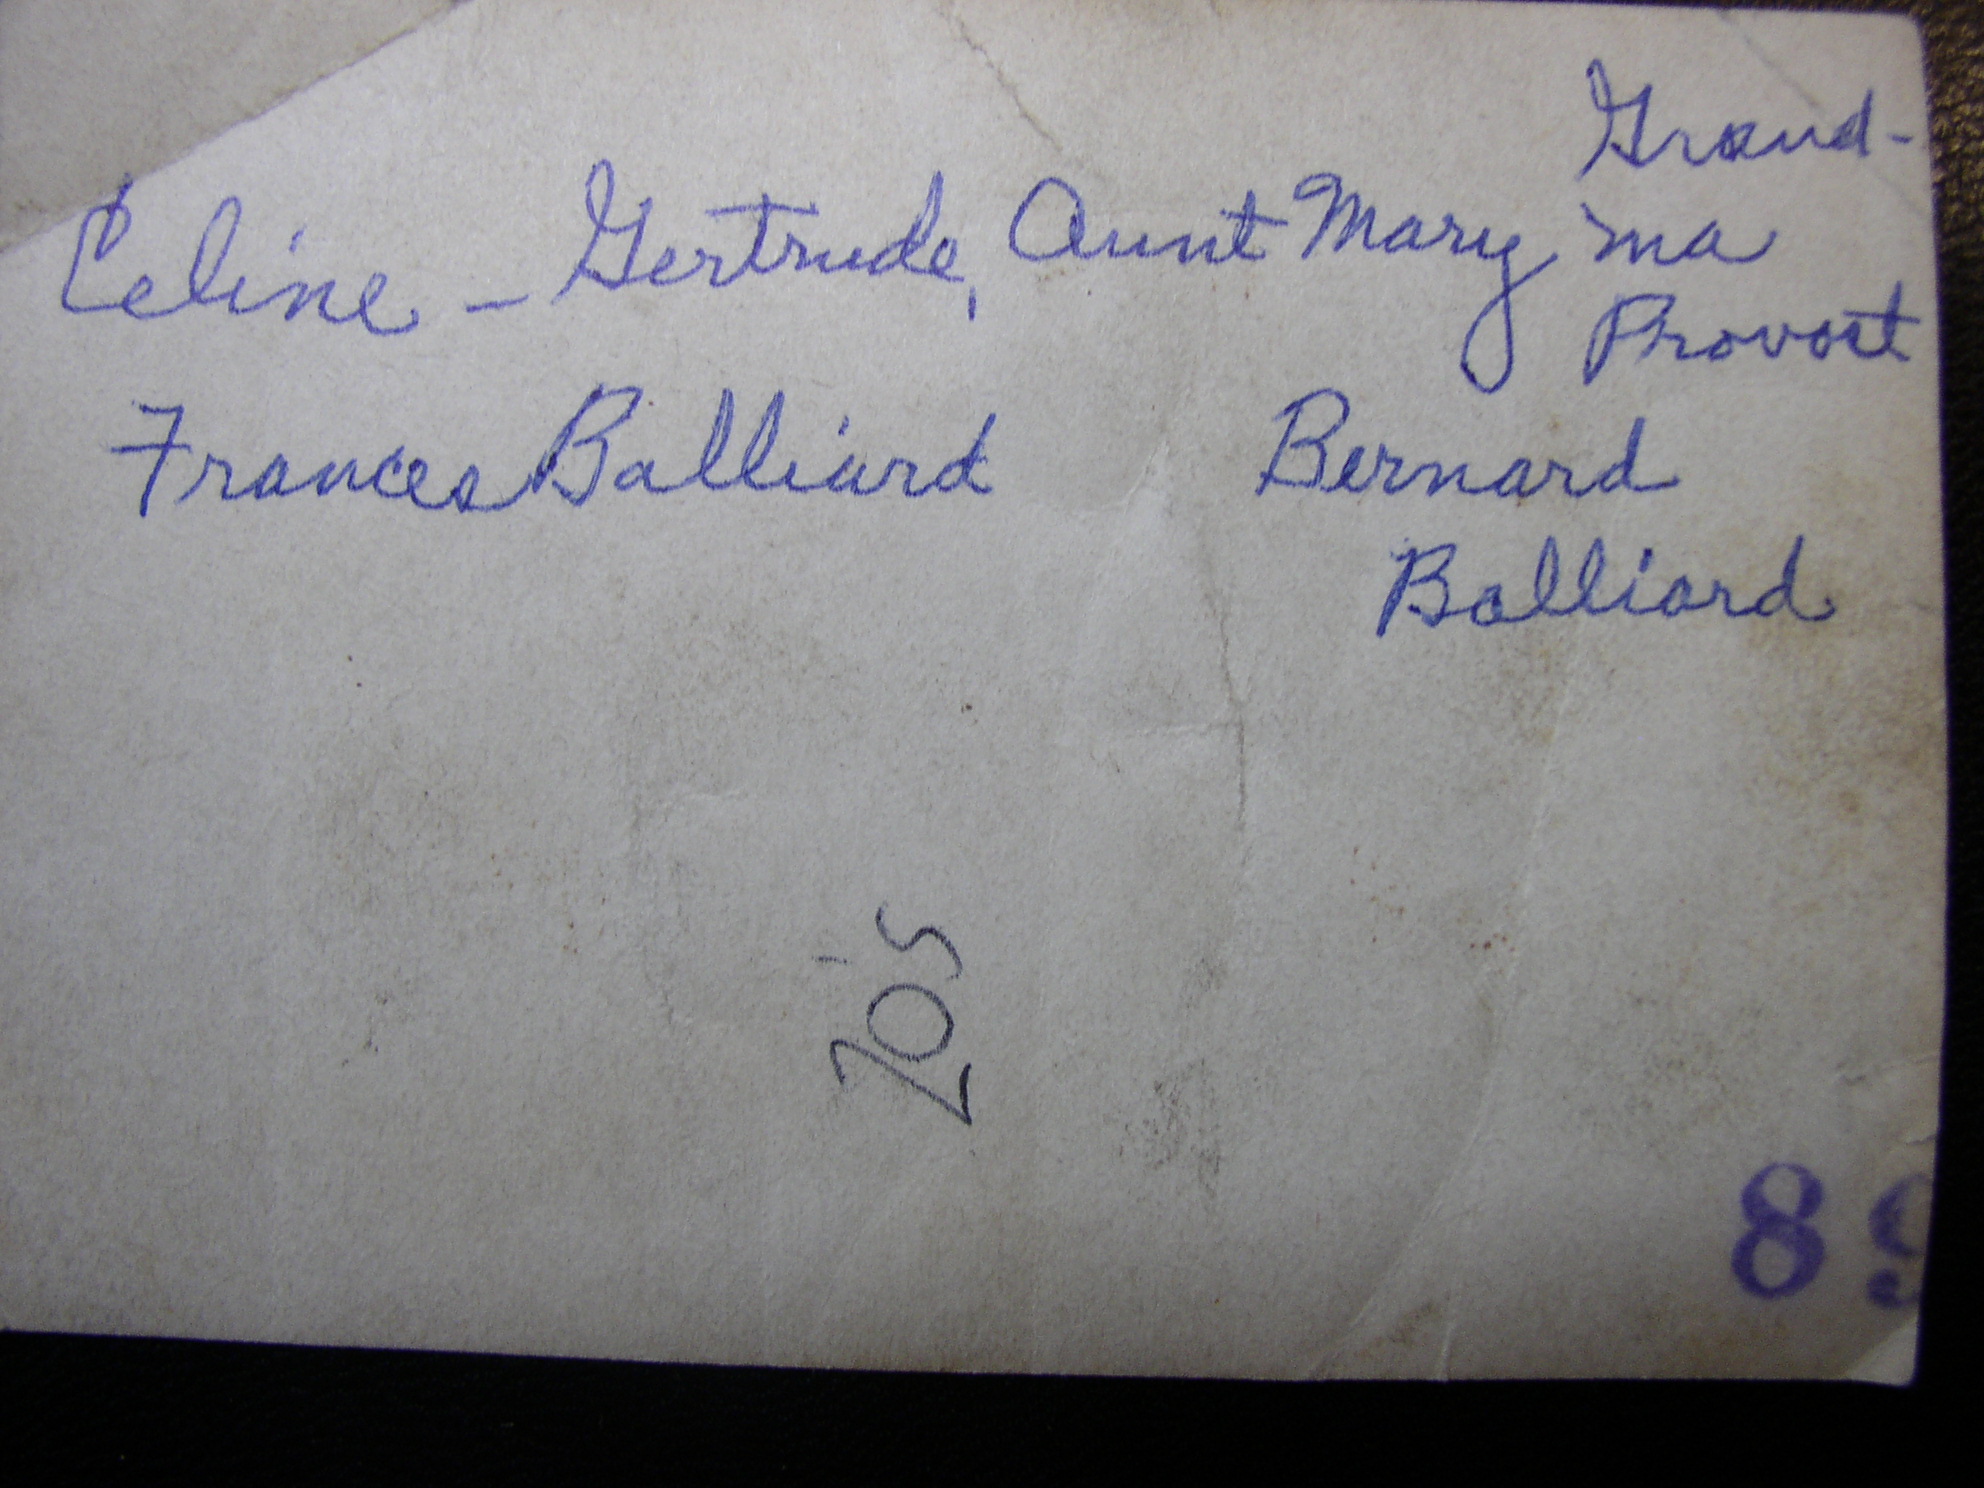 Celine - Gertrude, Aunt Mary Grand-
ma
Provost
Frances Balliard Bernard
Balliard
20's
89